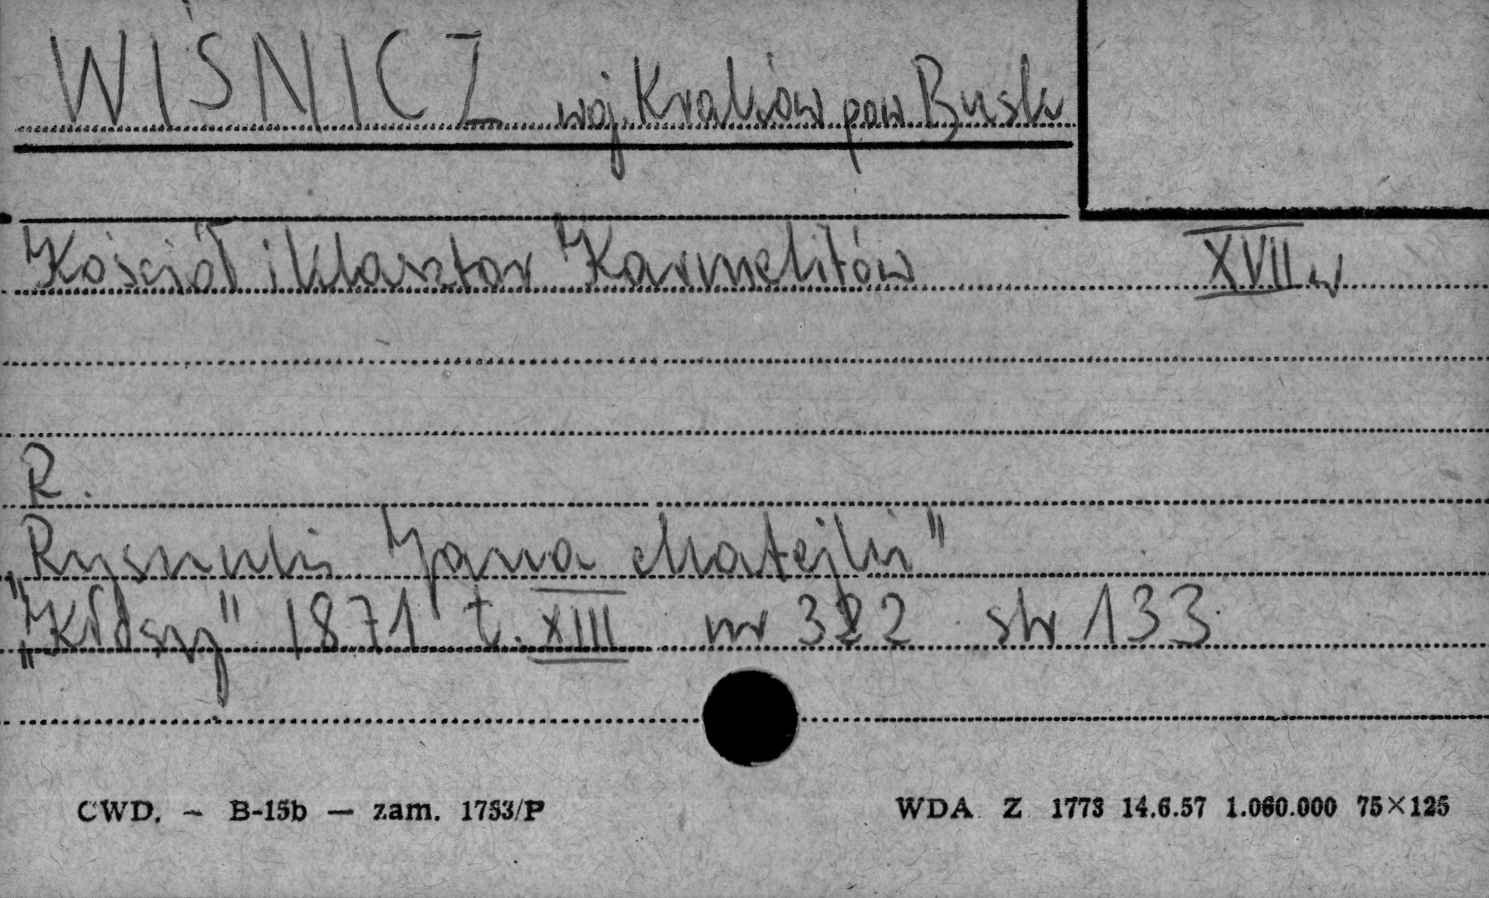 WIŚNICZ woj. Kraków pow Busk
Kościół i klasztor Karmelitów XVII w
R.
„Rysunki Jana Matejki"
„Kłosy" 1871 t. XIII nr 322 str 133
CWD. — B-15b — zam. 1753/P WDA Z 1773 14.6.57 1.060.000 75×125